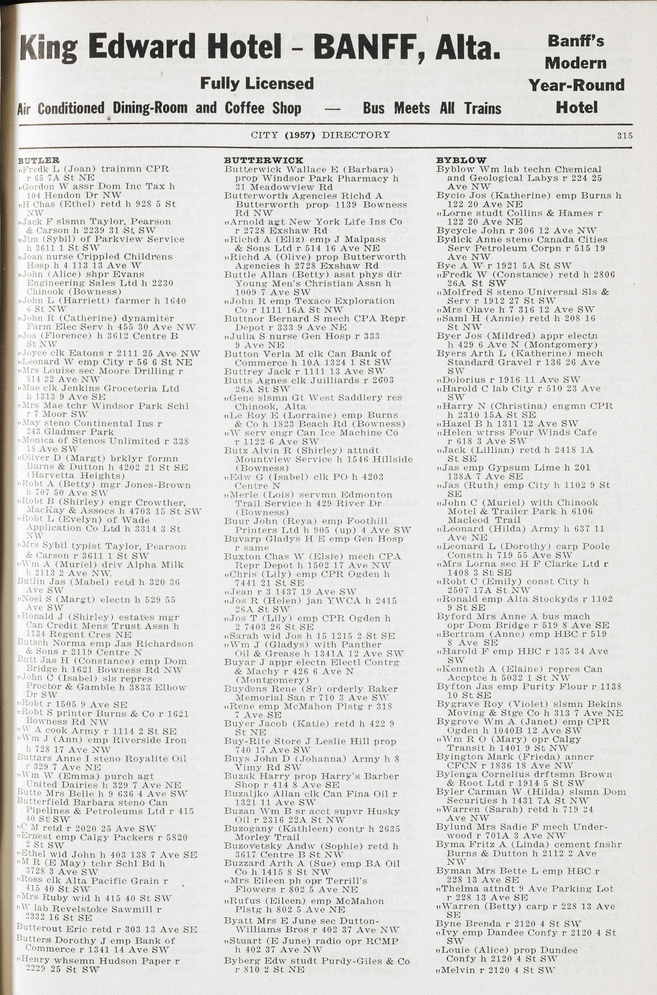 King Edward Hotel - BANFF, Alta.
Fully Licensed
Air Conditioned Dining-Room and Coffee Shop — Bus Meets All Trains
Banff's
Modern
Year-Round
Hotel
CITY (1957) DIRECTORY 315
BUTLER
„Fredk L (Joan) trainmn CPR
r 65 7A St NE
„Gordon W assr Dom Inc Tax h
104 Hendon Dr NW
„H Chas (Ethel) retd h 928 5 St
NW
„Jack F slsmn Taylor, Pearson
& Carson h 2239 31 St SW
„Jim (Sybil) of Parkview Service
h 2611 1 St SW
„Joan nurse Crippled Childrens
Hosp h 4 113 13 Ave W
„John (Alice) shpr Evans
Engineering Sales Ltd h 2230
Chinook (Bowness)
„John L (Harriett) farmer h 1640
6 St NW
„John R (Catherine) dynamiter
Farm Elec Serv h 455 30 Ave NW
„Jos (Florence) h 3612 Centre B
St NW
„Joyce clk Eatons r 2111 25 Ave NW
„Leonard W emp City r 56 6 St NE
„Mrs Louise sec Moore Drilling r
814 22 Ave NW
„Mae clk Jenkins Groceteria Ltd
h 1313 9 Ave SE
„Mrs Mae tchr Windsor Park Schl
r 7 Moor SW
„May steno Continental Ins r
243 Gladmer Park
„Monica of Stenos Unlimited r 338
18 Ave SW
„Oliver D (Margt) brklyr formn
Burns & Dutton h 4202 21 St SE
(Harvetta Heights)
„Robt A (Betty) mgr Jones-Brown
h 707 50 Ave SW
„Robt B (Shirley) engr Crowther,
MacKay & Assocs h 4703 15 St SW
„Robt L (Evelyn) of Wade
Application Co Ltd h 3314 3 St
NW
„Mrs Sybil typist Taylor, Pearson
& Carson r 3611 1 St SW
„Wm A (Muriel) driv Alpha Milk
h 2113 2 Ave NW
Butlin Jas (Mabel) retd h 320 36
Ave SW
„Noel S (Margt) electn h 529 55
Ave SW
„Ronald J (Shirley) estates mgr
Can Credit Mens Trust Assn h
1134 Regent Cres NE
Butsch Norma emp Jas Richardson
& Sons r 2119 Centre N
Butt Jas H (Constance) emp Dom
Bridge h 1621 Bowness Rd NW
„John C (Isabel) sls repres
Proctor & Gamble h 3833 Elbow
Dr SW
„Robt r 1505 9 Ave SE
„Robt S printer Burns & Co r 1621
Bowness Rd NW
„W A cook Army r 1114 2 St SE
„Wm J (Ann) emp Riverside Iron
h 728 17 Ave NW
Buttars Anne I steno Royalite Oil
r 329 7 Ave NE
„Wm W (Emma) purch agt
United Dairies h 329 7 Ave NE
Butte Mrs Belle h 9 636 4 Ave SW
Butterfield Barbara steno Can
Pipelines & Petroleums Ltd r 415
40 St SW
„C M retd r 2020 25 Ave SW
„Ernest emp Calgy Packers r 5820
2 St SW
„Ethel wid John h 403 138 7 Ave SE
„M R (E May) tchr Schl Bd h
3728 3 Ave SW
„Ross clk Alta Pacific Grain r
415 40 St SW
„Mrs Ruby wid h 415 40 St SW
„W lab Revelstoke Sawmill r
2332 16 St SE
Butterout Eric retd r 303 13 Ave SW
Butters Dorothy J emp Bank of
Commerce r 1341 14 Ave SW
„Henry whsemn Hudson Paper r
2229 25 St SW
BUTTERWICK
Butterwick Wallace E (Barbara)
prop Windsor Park Pharmacy h
31 Meadowview Rd
Butterworth Agencies Richd A
Butterworth prop 1139 Bowness
Rd NW
„Arnold agt New York Life Ins Co
r 2728 Exshaw Rd
„Richd A (Eliz) emp J Malpass
& Sons Ltd r 514 16 Ave NE
„Richd A (Olive) prop Butterworth
Agencies h 2728 Exshaw Rd
Buttle Allan (Betty) asst phys dir
Young Men's Christian Assn h
1009 7 Ave SW
„John R emp Texaco Exploration
Co r 1111 16A St NW
Buttnor Bernard S mech CPA Repr
Depot r 333 9 Ave NE
„Julia S nurse Gen Hosp r 333
9 Ave NE
Button Verla M clk Can Bank of
Commerce h 10A 1324 1 St SW
Buttrey Jack r 1111 13 Ave SW
Butts Agnes clk Juilliards r 2603
26A St SW
„Gene slsmn Gt West Saddlery res
Chinook, Alta
„Le Roy E (Lorraine) emp Burns
& Co h 1823 Beach Rd (Bowness)
„W serv engr Can Ice Machine Co
r 1122 6 Ave SW
Butz Alvin R (Shirley) attndt
Mountview Service h 1546 Hillside
(Bowness)
„Edw G (Isabel) clk PO h 4203
Centre N
„Merle (Lois) servmn Edmonton
Trail Service h 429 River Dr
(Bowness)
Buur John (Reya) emp Foothill
Printers Ltd h 905 (up) 4 Ave SW
Buvarp Gladys H E emp Gen Hosp
r same
Buxton Chas W (Elsie) mech CPA
Repr Depot h 1502 17 Ave NW
„Chris (Lily) emp CPR Ogden h
7441 21 St SE
„Jean r 3 1437 19 Ave SW
„Jos R (Helen) jan YWCA h 2415
26A St SW
„Jos T (Lily) emp CPR Ogden h
2 7403 26 St SE
„Sarah wid Jos h 15 1215 2 St SE
„Wm J (Gladys) with Panther
Oil & Grease h 1341A 12 Ave SW
Buyar J appr electn Electl Contrg
& Machy r 426 6 Ave N
(Montgomery)
Buydens Rene (Sr) orderly Baker
Memorial San r 710 3 Ave SW
„Rene emp McMahon Plstg r 318
7 Ave SE
Buyer Jacob (Katie) retd h 422 9
St NE
Buy-Rite Store J Leslie Hill prop
740 17 Ave SW
Buys John D (Johanna) Army h 8
Vimy Rd SW
Buzak Harry prop Harry's Barber
Shop r 414 8 Ave SE
Buzaljko Allan clk Can Fina Oil r
1321 11 Ave SW
Buzan Wm B sr acct supvr Husky
Oil r 2316 22A St NW
Buzogany (Kathleen) contr h 2635
Morley Trail
Buzovetsky Andw (Sophie) retd h
3617 Centre B St NW
Buzzard Arth A (Sue) emp BA Oil
Co h 1415 8 St NW
„Mrs Eileen ph opr Terrill's
Flowers r 802 5 Ave NE
„Rufus (Eileen) emp McMahon
Plstg h 802 5 Ave NE
Byatt Mrs E June sec Dutton-
Williams Bros r 402 37 Ave NW
„Stuart (E June) radio opr RCMP
h 402 37 Ave NW
Byberg Edw studt Purdy-Giles & Co
r 810 2 St NE
BYBLOW
Byblow Wm lab techn Chemical
and Geological Labys r 224 25
Ave NW
Bycio Jos (Katherine) emp Burns h
122 20 Ave NE
„Lorne studt Collins & Hames r
122 20 Ave NE
Bycycle John r 306 12 Ave NW
Bydick Anne steno Canada Cities
Serv Petroleum Corpn r 515 19
Ave NW
Bye A W r 1921 5A St SW
„Fredk W (Constance) retd h 2806
26A St SW
„Molfred S steno Universal Sls &
Serv r 1912 27 St SW
„Mrs Olave h 7 316 12 Ave SW
„Saml H (Annie) retd h 208 16
St NW
Byer Jos (Mildred) appr electn
h 429 6 Ave N (Montgomery)
Byers Arth L (Katherine) mech
Standard Gravel r 136 26 Ave
SW
„Dolorius r 1916 11 Ave SW
„Harold C lab City r 510 23 Ave
SW
„Harry N (Christina) engmn CPR
h 2310 15A St SE
„Hazel B h 1311 12 Ave SW
„Helen wtrss Four Winds Cafe
r 618 3 Ave SW
„Jack (Lillian) retd h 2418 1A
St SE
„Jas emp Gypsum Lime h 201
138A 7 Ave SE
„Jas (Ruth) emp City h 1102 9 St
SE
„John C (Muriel) with Chinook
Motel & Trailer Park h 6106
Macleod Trail
„Leonard (Hilda) Army h 637 11
Ave NE
„Leonard L (Dorothy) carp Poole
Constn h 719 55 Ave SW
„Mrs Lorna sec H F Clarke Ltd r
1408 3 St SE
„Robt C (Emily) const City h
2507 17A St NW
„Ronald emp Alta Stockyds r 1102
9 St SE
Byford Mrs Anne A bus mach
opr Dom Bridge r 519 8 Ave SE
„Bertram (Anne) emp HBC r 519
8 Ave SE
„Harold F emp HBC r 135 34 Ave
SW
„Kenneth A (Elaine) repres Can
Accptce h 5032 1 St NW
Byfton Jas emp Purity Flour r 1138
10 St SE
Bygrave Roy (Violet) slsmn Bekins
Moving & Stge Co h 313 7 Ave NE
Bygrove Wm A (Janet) emp CPR
Ogden h 1040B 12 Ave SW
„Wm R O (Mary) opr Calgy
Transit h 1401 9 St NW
Byington Mark (Frieda) anncr
CFCN r 1836 18 Ave NW
Bylenga Cornelius drftsmn Brown
& Root Ltd r 1914 5 St SW
Byler Carman W (Hilda) slsmn Dom
Securities h 1431 7A St NW
„Warren (Sarah) retd h 719 24
Ave NW
Bylund Mrs Sadie F mech Under-
wood r 701A 3 Ave NW
Byma Fritz A (Linda) cement fnshr
Burns & Dutton h 2112 2 Ave
NW
Byman Mrs Bette L emp HBC r
228 13 Ave SE
„Thelma attndt 9 Ave Parking Lot
r 228 13 Ave SE
„Warren (Betty) carp r 228 13 Ave
SE
Byne Brenda r 2120 4 St SW
„Ivy emp Dandee Confy r 2120 4 St
SW
„Louie (Alice) prop Dundee
Confy h 2120 4 St SW
„Melvin r 2120 4 St SW